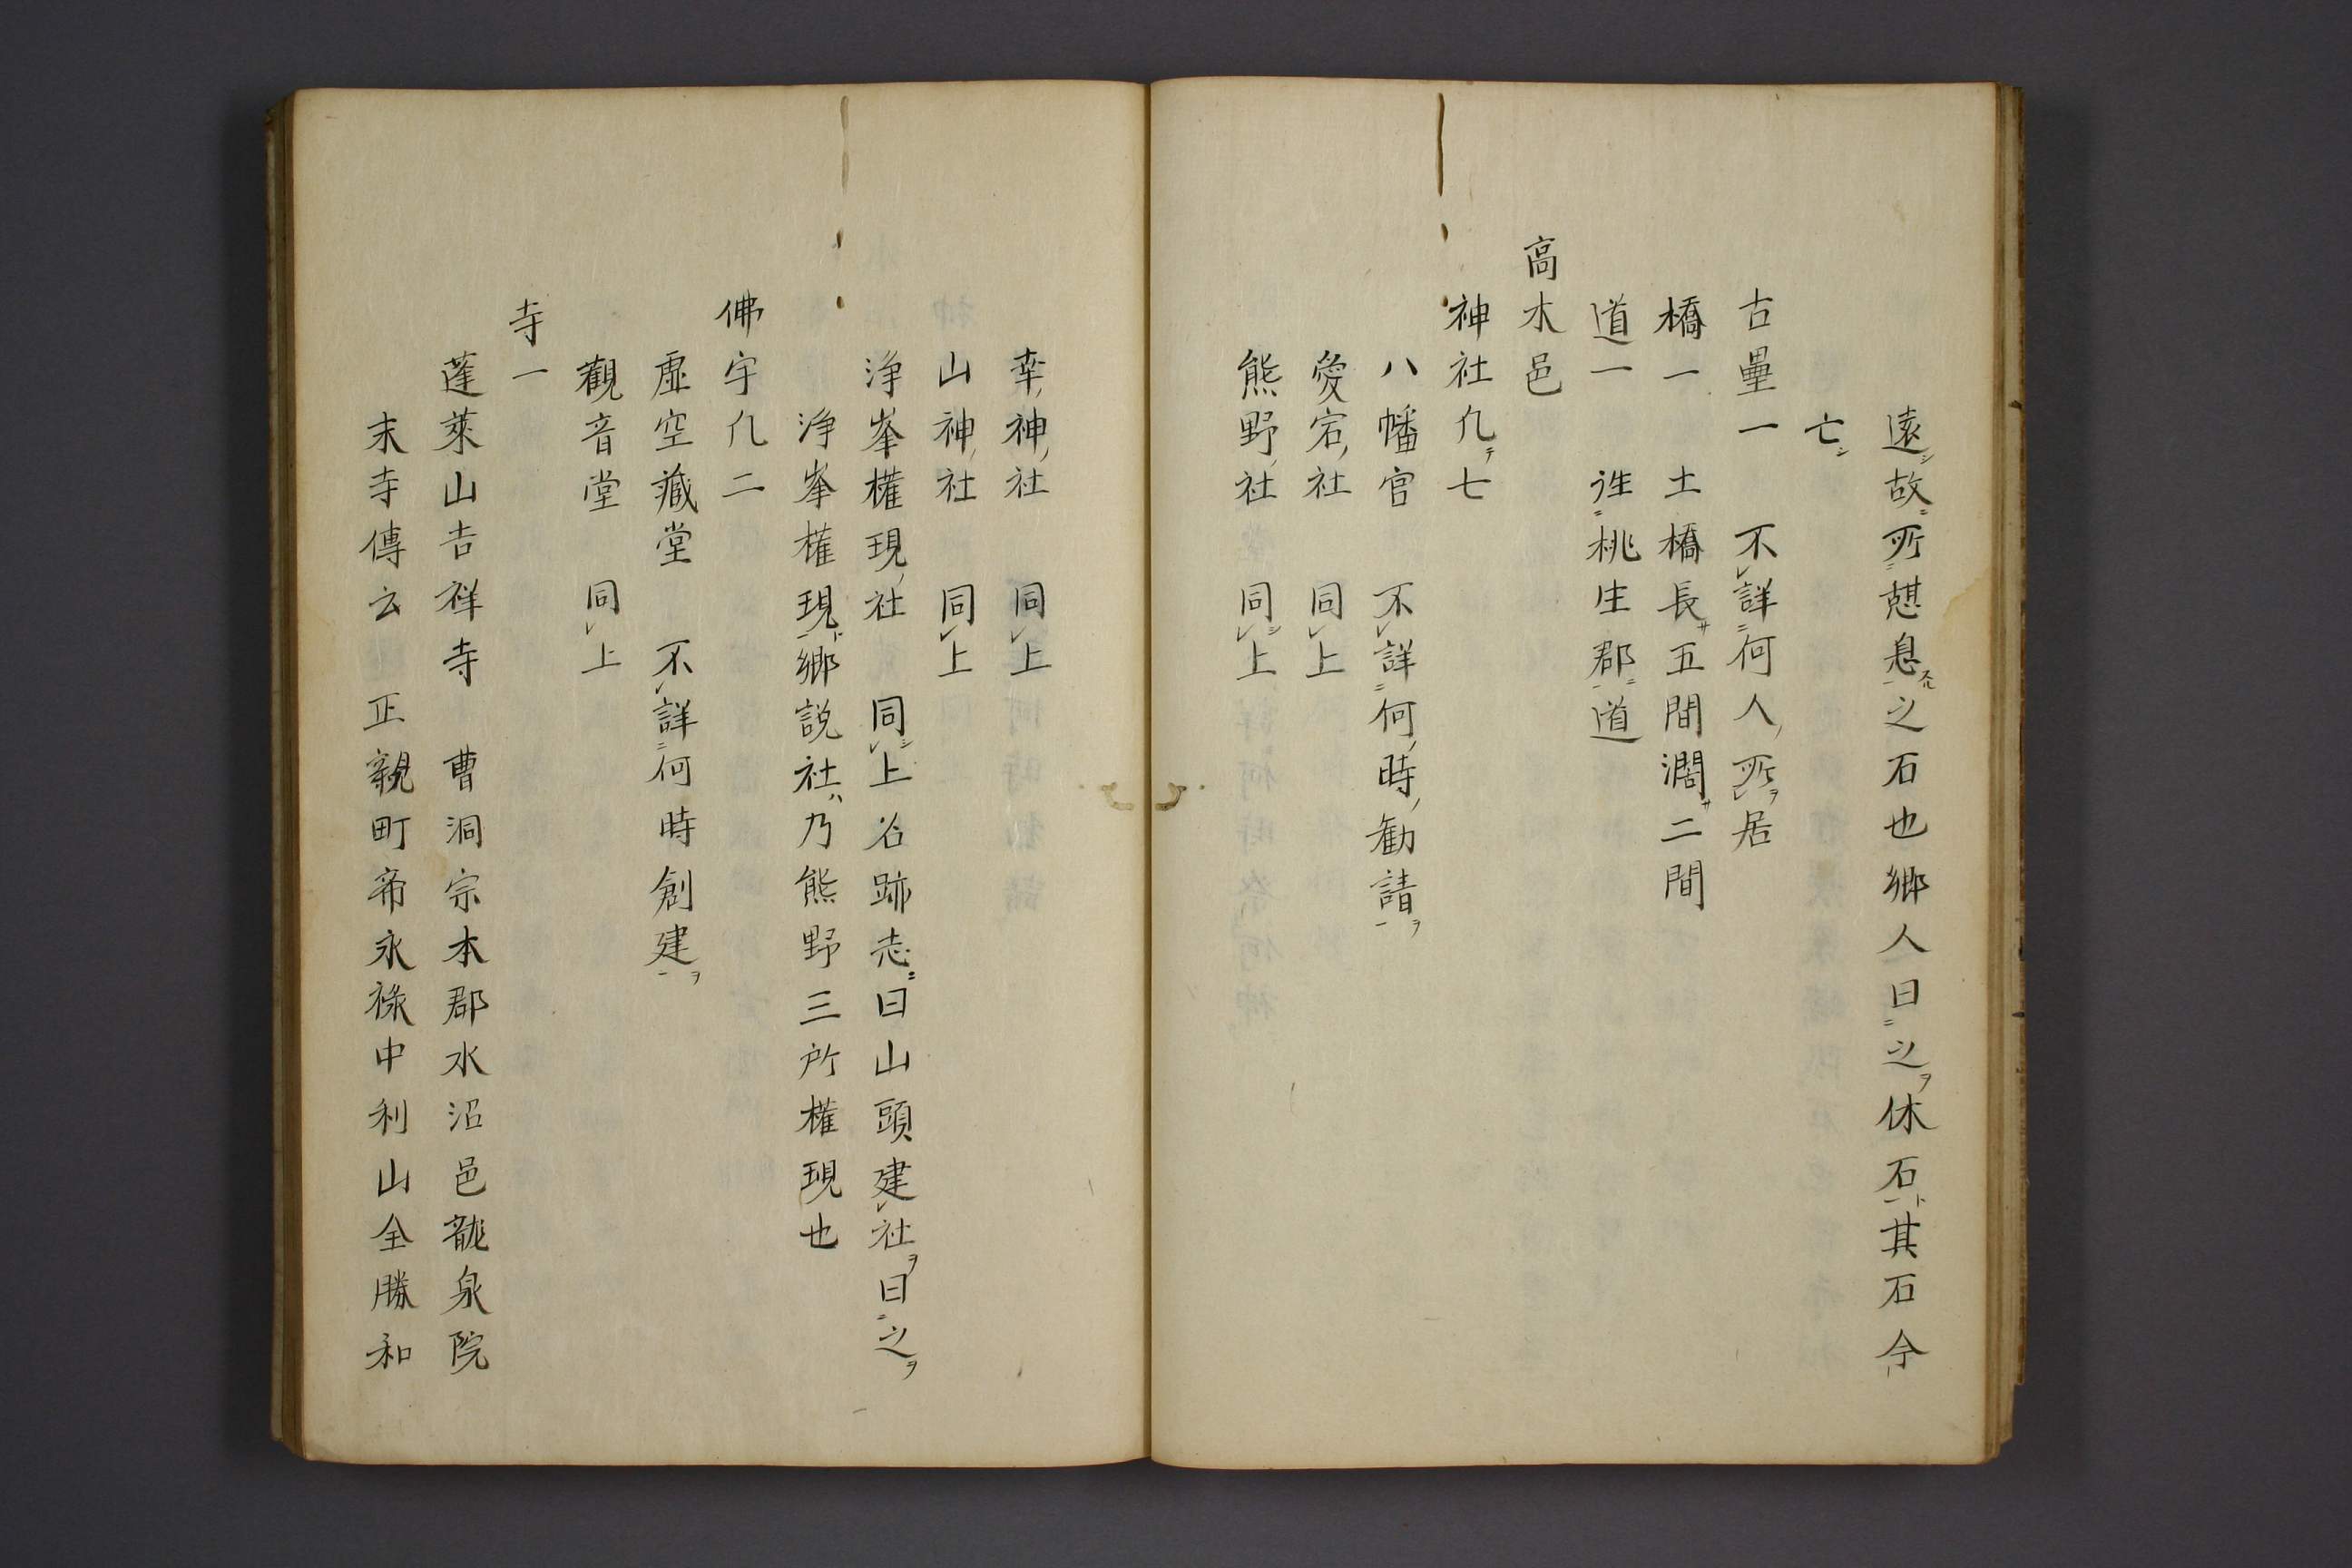 遠故所憇息之石也郷人曰之休石其石今
亡
古壘一　不詳何人所居
橋一　土橋長五間濶二間
道一　徃桃生郡道
高木邑
神社凢七
八幡宮　不詳何時勧請
愛宕社　同上
熊野社　同上
幸神社　同上
山神社　同上
浄峯権現社　同上名跡志曰山頭建社曰之
浄峯権現郷説社乃熊野三所権現也
佛宇凢二
虚空蔵堂　不詳何時創建
觀音堂　同上
寺一
蓬萊山吉祥寺　曹洞宗本郡水沼邑龍泉院
末寺傳云　正親町帝永禄中利山全勝和